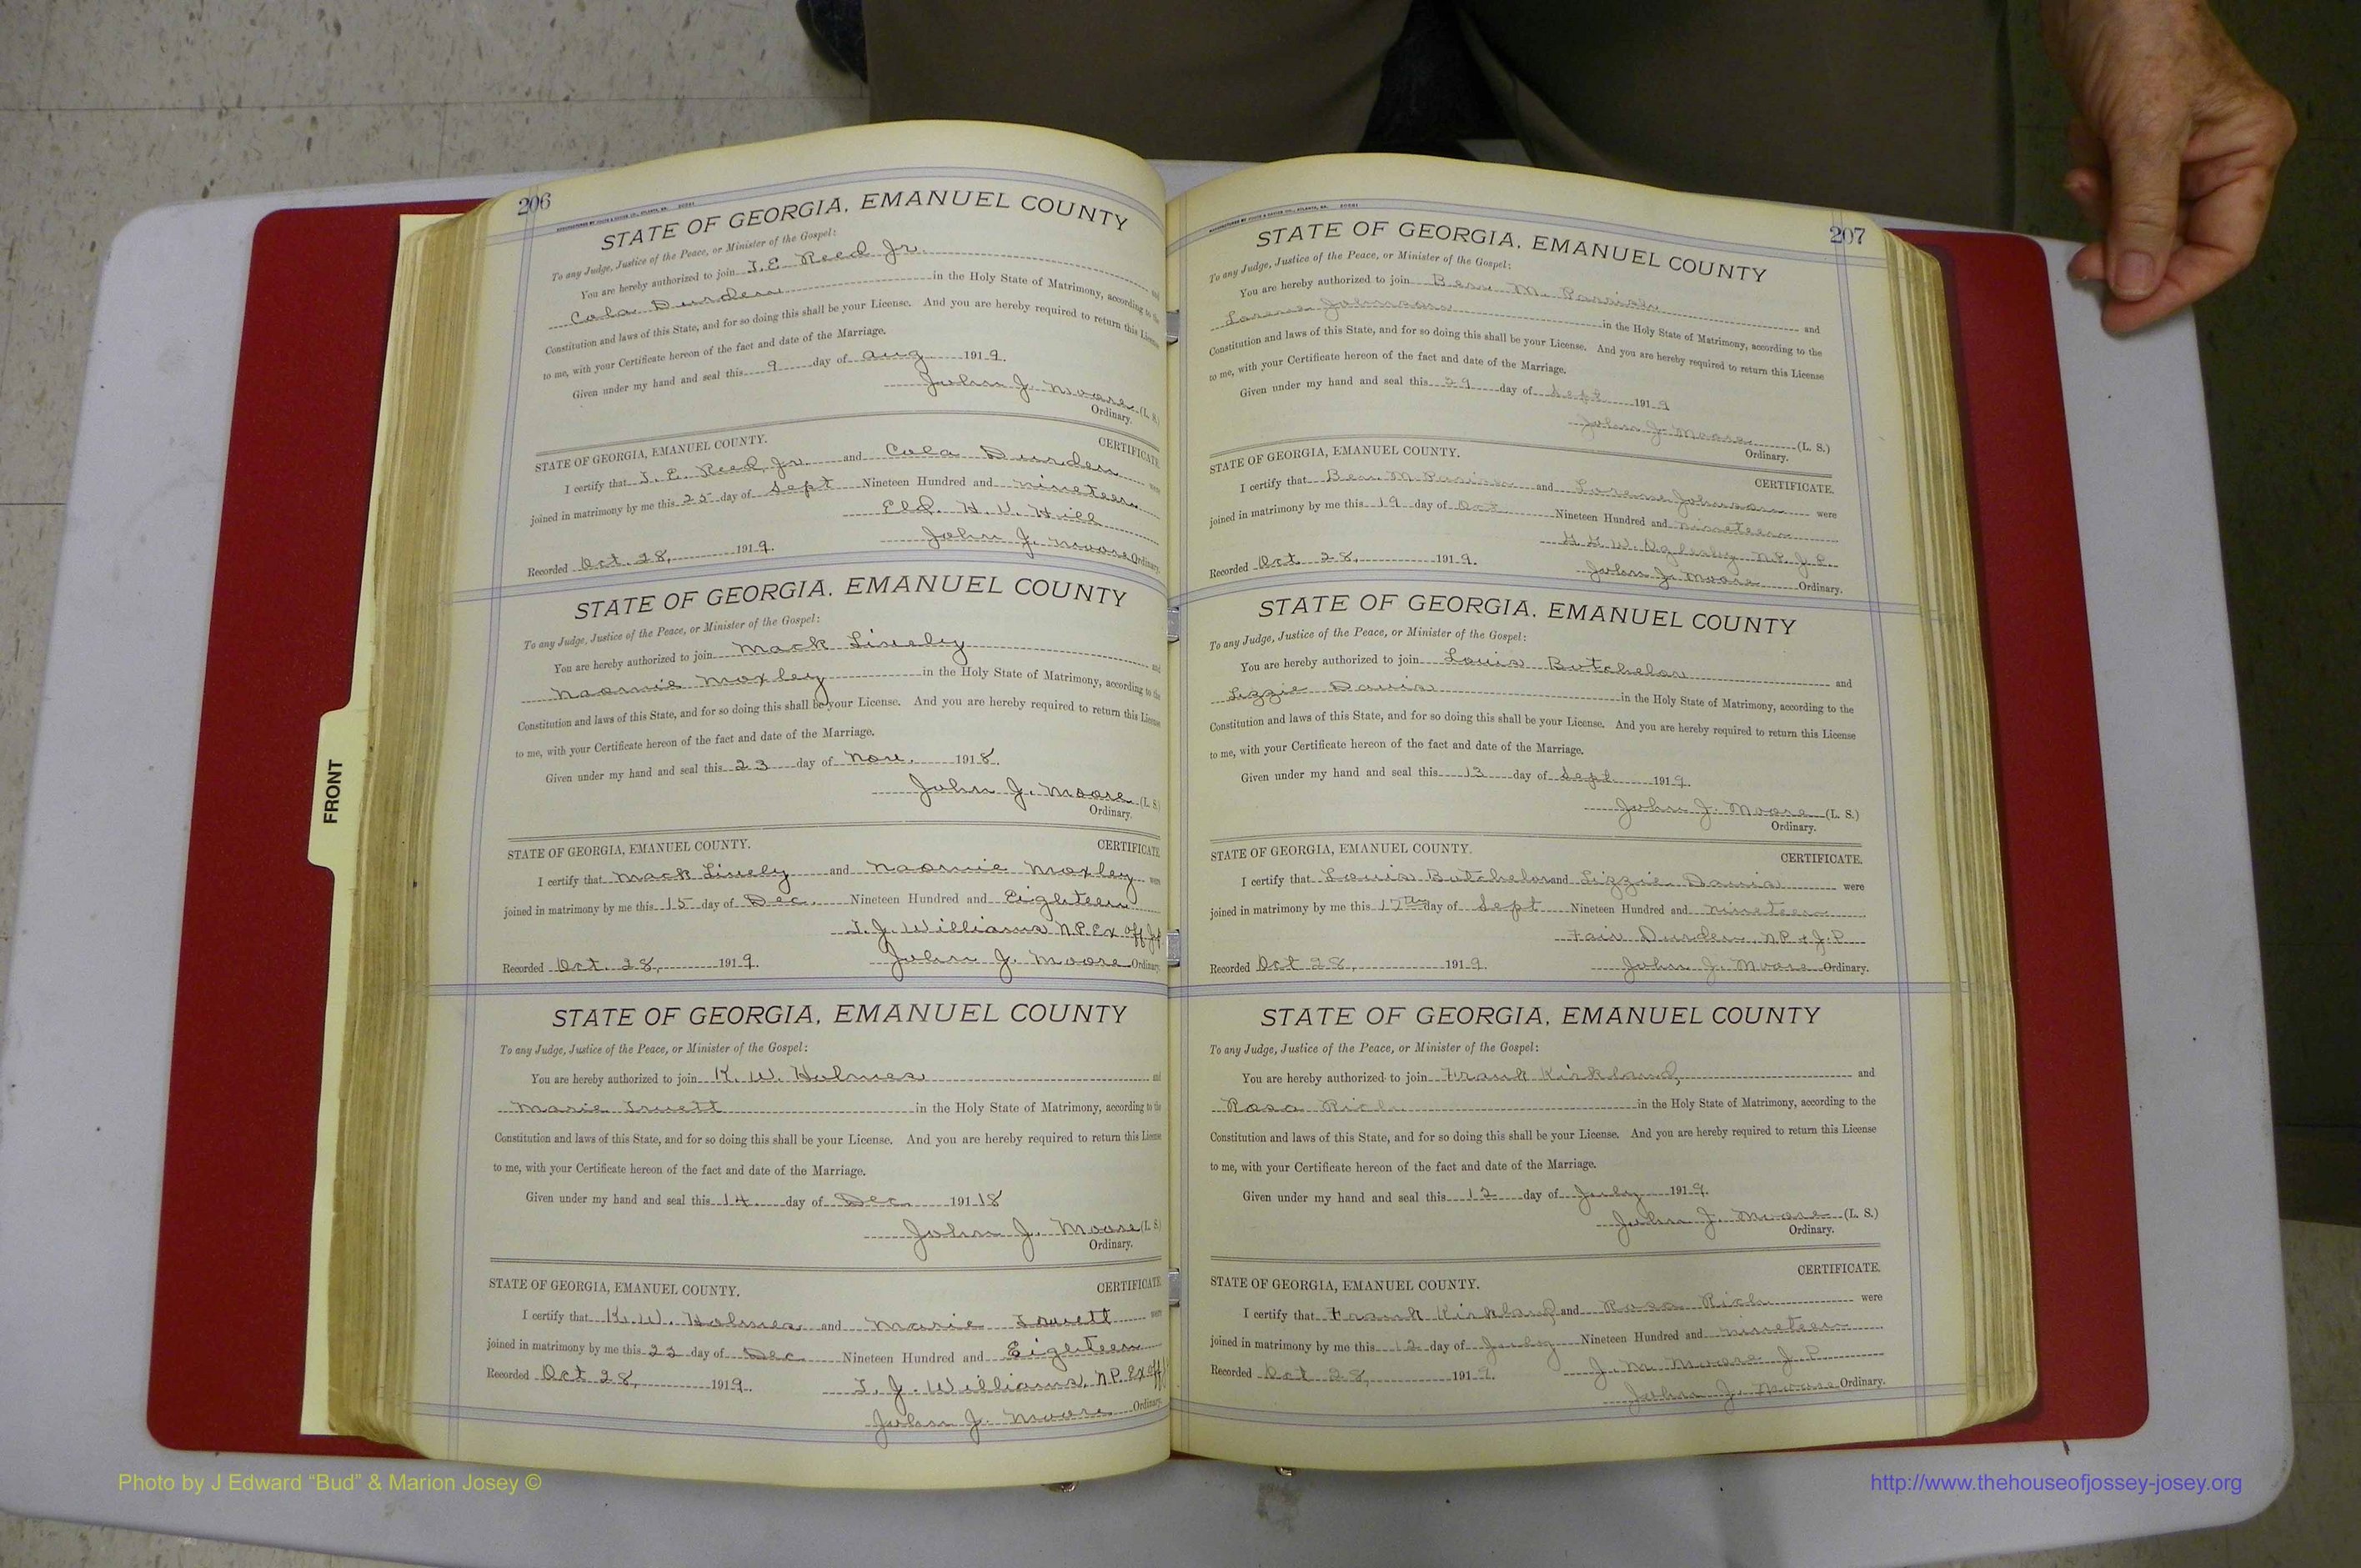 206
STATE OF GEORGIA, EMANUEL COUNTY
To any Judge, Justice of the Peace, or Minister of the Gospel:
You are hereby authorized to join J. E. Reed Jr. and
Cola Durden in the Holy State of Matrimony, according to the
Constitution and laws of this State, and for so doing this shall be your License. And you are hereby required to return this License
to me, with your Certificate hereon of the fact and date of the Marriage.
Given under my hand and seal this 9 day of Aug 1919.
John J. Moore (L. S.)
Ordinary.
STATE OF GEORGIA, EMANUEL COUNTY. CERTIFICATE
I certify that J. E. Reed, Jr. and Cola Durden were
joined in matrimony by me this 25 day of Sept Nineteen Hundred and nineteen
Eld. H. V. Hill
Recorded Oct. 28, 1919. John J. Moore Ordinary.
STATE OF GEORGIA, EMANUEL COUNTY
To any Judge, Justice of the Peace, or Minister of the Gospel:
You are hereby authorized to join Mack Lively and
Naomie Moxley in the Holy State of Matrimony, according to the
Constitution and laws of this State, and for so doing this shall be your License. And you are hereby required to return this License
to me, with your Certificate hereon of the fact and date of the Marriage.
Given under my hand and seal this 23 day of Nov. 1918.
John J. Moore (L. S.)
Ordinary.
STATE OF GEORGIA, EMANUEL COUNTY. CERTIFICATE
I certify that Mack Lively and Naomie Moxley were
joined in matrimony by me this 15 day of Dec. Nineteen Hundred and Eighteen
T. J. Williams N.P. Ex off J.P.
Recorded Oct. 28, 1919. John J. Moore Ordinary.
STATE OF GEORGIA, EMANUEL COUNTY
To any Judge, Justice of the Peace, or Minister of the Gospel:
You are hereby authorized to join K. W. Holmes and
Marie in the Holy State of Matrimony, according to the
Constitution and laws of this State, and for so doing this shall be your License. And you are hereby required to return this License
to me, with your Certificate hereon of the fact and date of the Marriage.
Given under my hand and seal this 14 day of Dec. 19118
John J. Moore (L. S.)
Ordinary.
STATE OF GEORGIA, EMANUEL COUNTY. CERTIFICATE
I certify that K. W. Holmes and Marie were
joined in matrimony by me this 22 day of Dec Nineteen Hundred and Eighteen
Recorded Oct 28, 1919. T. J. Williams, N.P. Ex off
John J. Moore Ordinary.
207
STATE OF GEORGIA, EMANUEL COUNTY
To any Judge, Justice of the Peace, or Minister of the Gospel:
You are hereby authorized to join Ben M. Parrish and
Lorena Johnson in the Holy State of Matrimony, according to the
Constitution and laws of this State, and for so doing this shall be your License. And you are hereby required to return this License
to me, with your Certificate hereon of the fact and date of the Marriage.
Given under my hand and seal this 29 day of Sept 1919
John J. Moore (L. S.)
Ordinary.
STATE OF GEORGIA, EMANUEL COUNTY. CERTIFICATE.
I certify that Ben. M Parrish and Lorena Johnson were
joined in matrimony by me this 19 day of Oct Nineteen Hundred and nineteen
W. Oglesby N.P. J.P.
Recorded Oct. 28, 1919. John J. Moore Ordinary.
STATE OF GEORGIA, EMANUEL COUNTY
To any Judge, Justice of the Peace, or Minister of the Gospel:
You are hereby authorized to join Louis Butchelor and
Lizzie Davis in the Holy State of Matrimony, according to the
Constitution and laws of this State, and for so doing this shall be your License. And you are hereby required to return this License
to me, with your Certificate hereon of the fact and date of the Marriage.
Given under my hand and seal this 13 day of Sept 1919.
John J. Moore (L. S.)
Ordinary.
STATE OF GEORGIA, EMANUEL COUNTY. CERTIFICATE.
I certify that Louis Butchelor and Lizzie Davis were
joined in matrimony by me this 17th day of Sept Nineteen Hundred and nineteen
Fair Durden N.P & J.P
Recorded Oct 28, 1919. John J. Moore Ordinary.
STATE OF GEORGIA, EMANUEL COUNTY
To any Judge, Justice of the Peace, or Minister of the Gospel:
You are hereby authorized to join Frank Kirkland, and
Rosa Rich in the Holy State of Matrimony, according to the
Constitution and laws of this State, and for so doing this shall be your License. And you are hereby required to return this License
to me, with your Certificate hereon of the fact and date of the Marriage.
Given under my hand and seal this 12 day of July 1919.
John J. Moore (L. S.)
Ordinary.
STATE OF GEORGIA, EMANUEL COUNTY. CERTIFICATE.
I certify that Frank Kirkland and Rosa Rich were
joined in matrimony by me this 12 day of July Nineteen Hundred and nineteen
Recorded Oct 28, 1919. J. M. Moore J.P.
John J. Moore Ordinary.
FRONT
Photo by J Edward “Bud” & Marion Josey ©
http://www.thehouseofjossey-josey.org